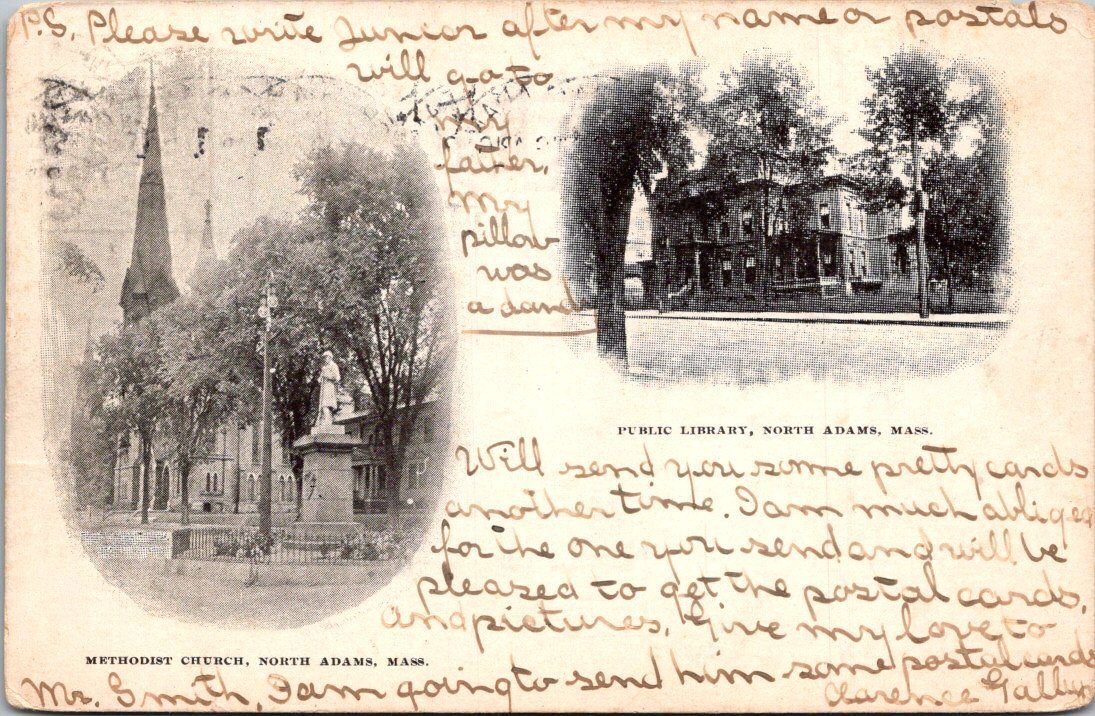 P.S. Please write Junior after my name or postals
will go to
my
father.
My
pillow
was
a dand
PUBLIC LIBRARY, NORTH ADAMS, MASS.
Will send you some pretty cards
another time. I am much obliged
for the one you send and will be
pleased to get the postal cards,
and pictures. Give my love to
METHODIST CHURCH, NORTH ADAMS, MASS.
Mr. Smith, I am going to send him some postal cards
Clarence